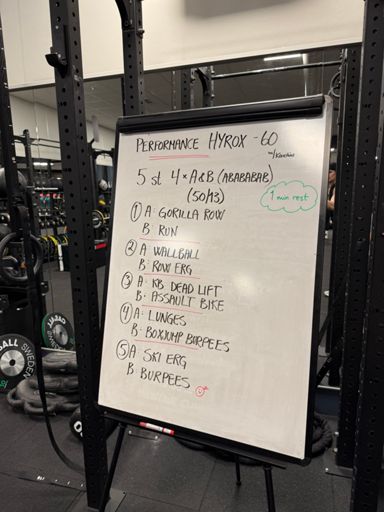 PERFORMANCE HYROX - 60
5 st 4 × A&B (ABABABAB)
(50/13)
1 min rest
① A: GORILLA ROW
B: RUN
② A: WALLBALL
B: ROW ERG
③ A: KB DEAD LIFT
B: ASSAULT BIKE
④ A: LUNGES
B: BOXJUMP BURPEES
⑤ A SKI ERG
B BURPEES
SWEDEN